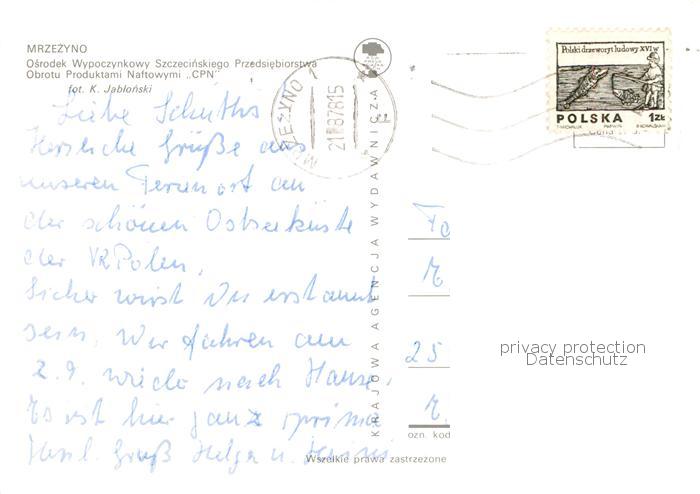 MRZEŻYNO
Ośrodek Wypoczynkowy Szczecińskiego Przedsiębiorstwa
Obrotu Produktami Naftowymi „CPN"
fot. K. Jabłoński
Liebe Schuths
Herzliche Grüße aus
unseren Ferienort an
der schönen Ostseeküste
der VR Polen.
Sicher wirst Du erstaunt
sein. Wir fahren am
2.9. wieder nach Hause.
Es ist hier ganz prima
Herzl. Gruß Helga u.
Wszelkie prawa zastrzeżone
KRAJOWA AGENCJA WYDAWNICZA
MRZEŻYNO 1
Polski drzeworyt ludowy XVI w
POLSKA 1ZŁ
25
ozn. kod
privacy protection
Datenschutz